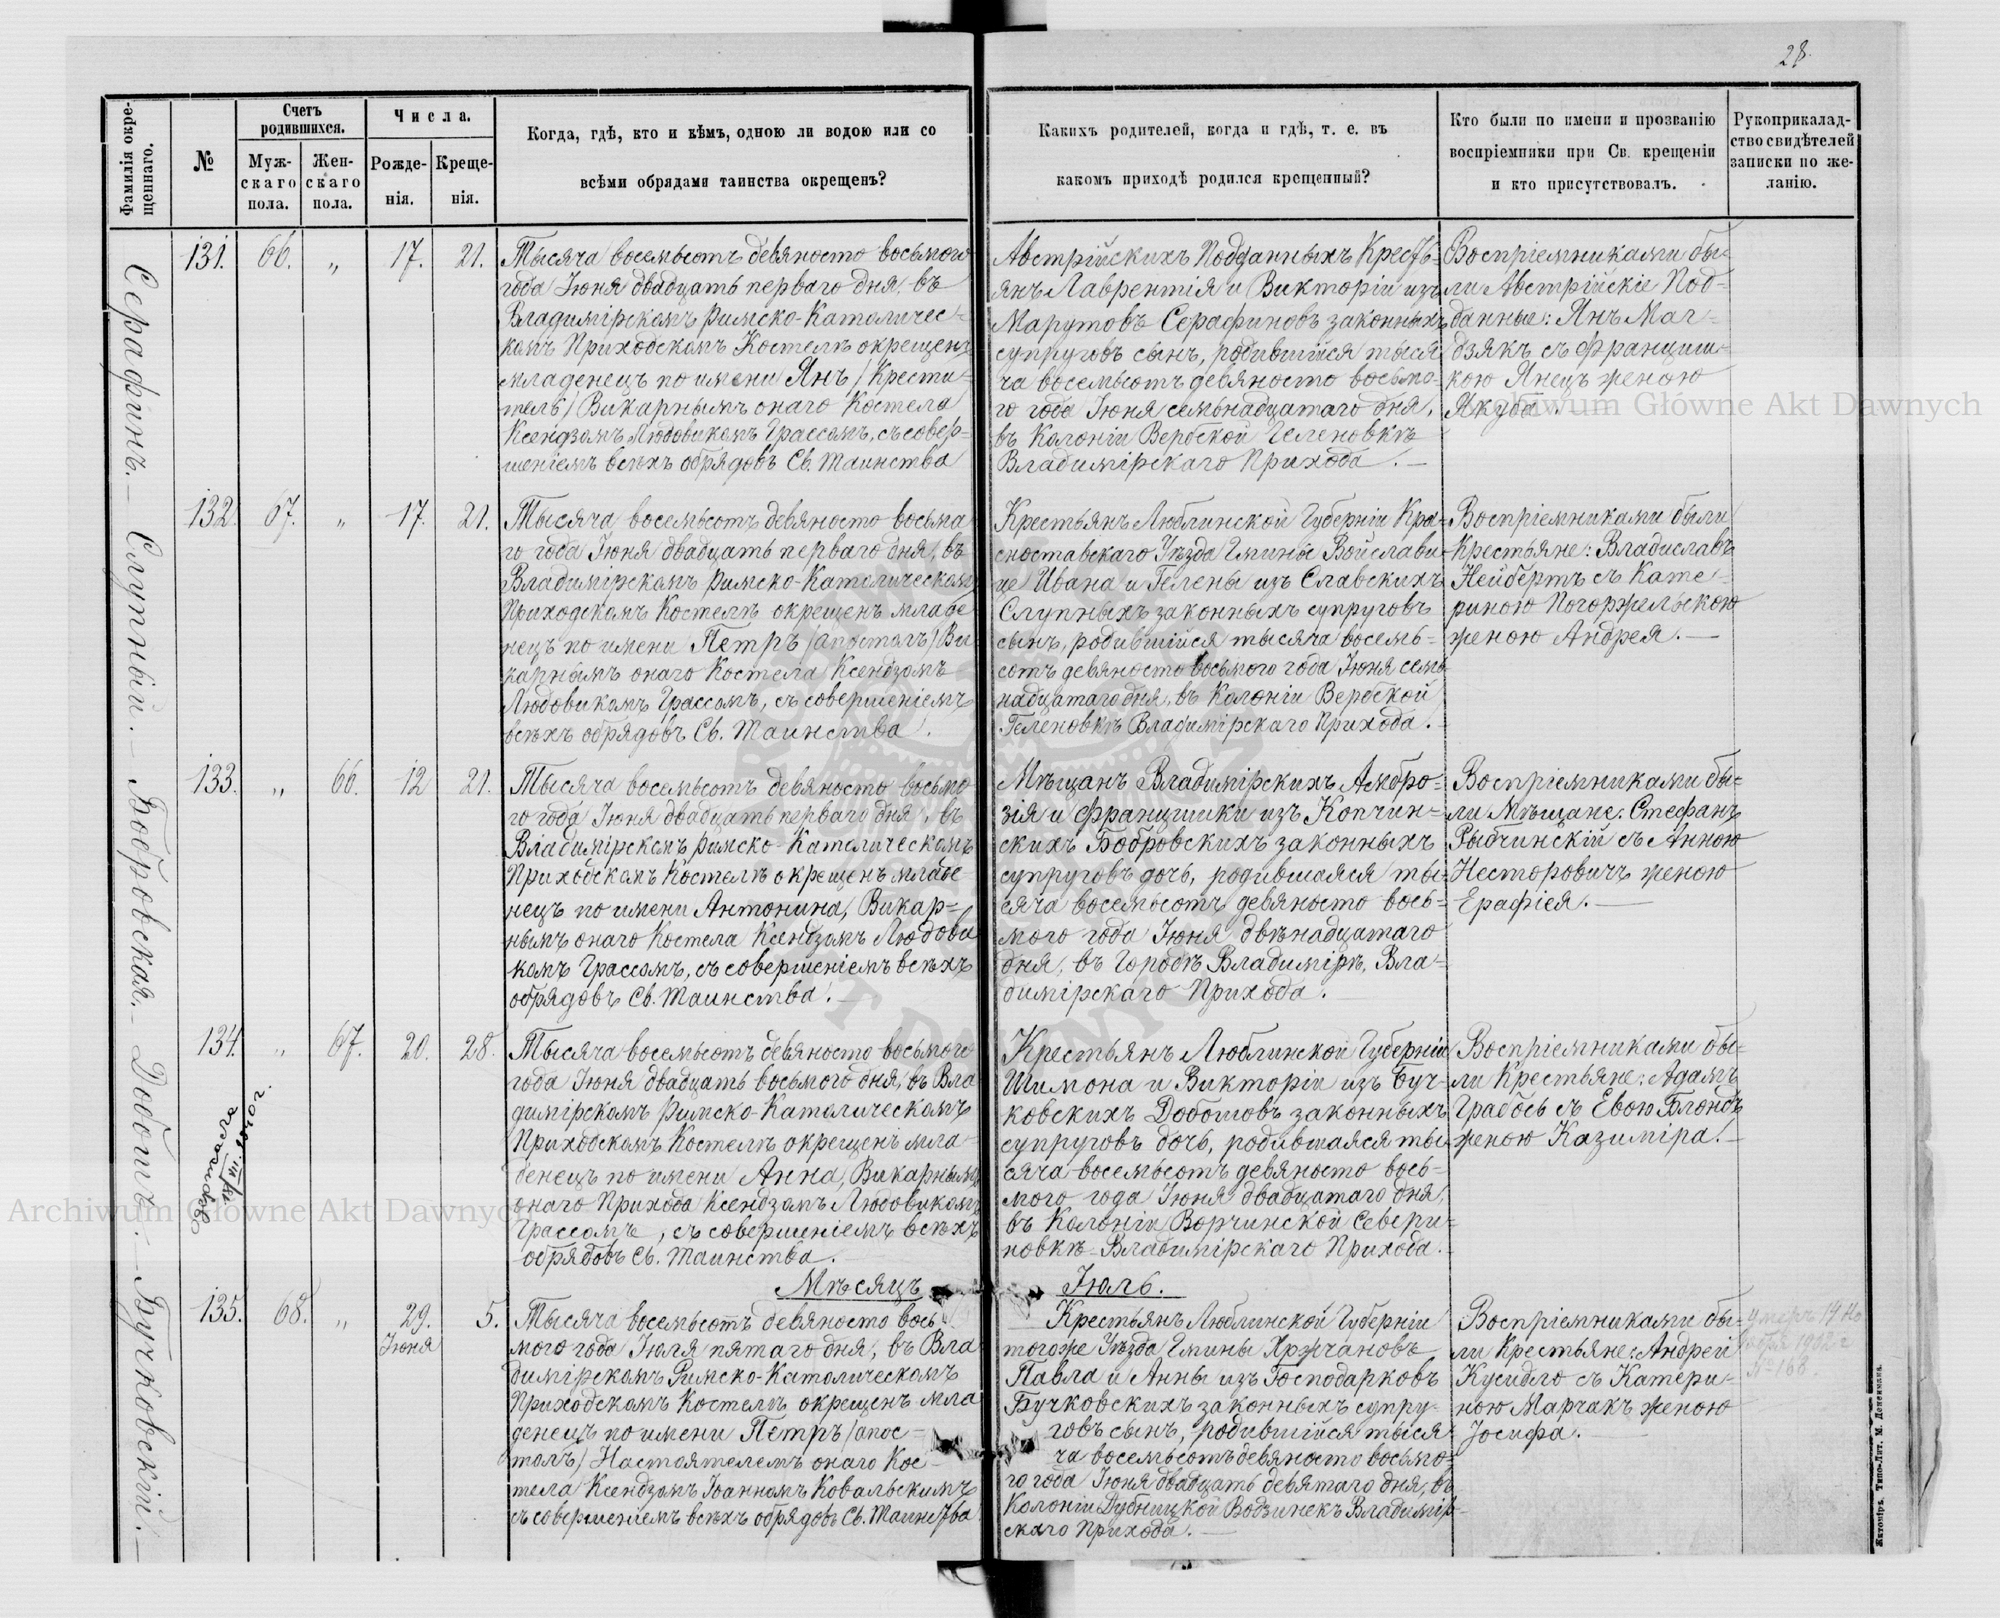 28.
Фамилія окре-
щеннаго.
№
Счетъ
родившихся.
Муж-
скаго
пола.
Жен-
скаго
пола.
Числа.
Рожде-
нія.
Креще-
нія.
Когда, гдѣ, кто и кѣмъ, одною ли водою или со
всѣми обрядами таинства окрещенъ?
Какихъ родителей, когда и гдѣ, т. е. въ
какомъ приходѣ родился крещенный?
Кто были по имени и прозванію
воспріемники при Св. крещеніи
и кто присутствовалъ.
Рукоприклад-
ство свидѣтелей
записки по же-
ланію.
Серафинъ.—
131. 66. „ 17. 21.
Тысяча восемьсотъ девяносто восьмого
года Іюня двадцать перваго дня, въ
Владимірскомъ Римско-Католичес-
комъ Приходскомъ Костелѣ окрещенъ
младенецъ по имени Янъ /Крести-
тель/ Викарнымъ онаго Костела
Ксендзомъ Людовикомъ Грассомъ, съ совер-
шеніемъ всѣхъ обрядовъ Св. Таинства
Австрійскихъ Подданныхъ Кресть-
янъ Лаврентія и Викторіи изъ
Марутовъ Серафиновъ законныхъ
супруговъ сынъ, родившійся тыся
ча восемьсотъ девяносто восьмо-
го года Іюня семьнадцатаго дня,
въ Колоніи Вербской Геленовкѣ
Владимірскаго Прихода.—
Воспріемниками бы-
ли Австрійскіе Под-
данные: Янъ Мат-
дзякъ съ Францишь-
кою Янецъ женою
Якуба.
Слупный.—
132. 67. „ 17. 21.
Тысяча восемьсотъ девяносто восьма
го года Іюня двадцать перваго дня, въ
Владимірскомъ Римско-Католическомъ
Приходскомъ Костелѣ окрещенъ младе
нецъ по имени Петръ /апостолъ/ Ви
карнымъ онаго Костела Ксендзомъ
Людовикомъ Грассомъ, съ совершеніемъ
всѣхъ обрядовъ Св. Таинства.
Крестьянъ Люблинской Губерніи Кра-
сноставскаго Уѣзда Гмины Войслави-
це Ивана и Гелены изъ Славскихъ
Слупныхъ законныхъ супруговъ
сынъ, родившійся тысяча восемь-
сотъ девяносто восьмого года Іюня семь
надцатаго дня, въ Колоніи Вербской
Геленовкѣ Владимірскаго Прихода.
Воспріемниками были
Крестьяне: Владиславъ
Нейбертъ съ Кате-
риною Погоржельскою
женою Андрея.—
Бобровская.—
133. „ 66. 12 21.
Тысяча восемьсотъ девяносто восьмо
го года Іюня двадцать перваго дня, въ
Владимірскомъ Римско-Католическомъ
Приходскомъ Костелѣ окрещенъ младе-
нецъ по имени Антонина, Викар-
нымъ онаго Костела Ксендзомъ Людови
комъ Грассомъ, съ совершеніемъ всѣхъ
обрядовъ Св. Таинства.—
Мѣщанъ Владимірскихъ Амбро-
зія и Францишки изъ Копчин-
скихъ Бобровскихъ законныхъ
супруговъ дочь, родившаяся ты-
сяча восемьсотъ девяносто вось-
мого года Іюня двѣнадцатаго
дня, въ Городѣ Владимірѣ, Вла-
димірскаго Прихода.
Воспріемниками бы-
ли Мѣщане: Стефанъ
Рыбчинскій съ Анною
Несторовичъ женою
Ерафіея.—
Добошъ.—
134. „ 67. 20. 28.
Тысяча восемьсотъ девяносто восьмого
года Іюня двадцать восьмого дня, въ Вла
димірскомъ Римско-Католическомъ
Приходскомъ Костелѣ окрещенъ мла-
денецъ по имени Анна, Викарнымъ
онаго Прихода Ксендзомъ Людовикомъ
Грассомъ, съ совершеніемъ всѣхъ
обрядовъ Св. Таинства.
Крестьянъ Люблинской Губерніи
Шимона и Викторіи изъ Буч-
ковскихъ Добошовъ законныхъ
супруговъ дочь, родившаяся ты-
сяча восемьсотъ девяносто вось-
мого года Іюня двадцатаго дня,
въ Колоніи Ворчинской Севери-
новкѣ Владимірскаго Прихода.
Воспріемниками бы-
ли Крестьяне: Адамъ
Грабось съ Евою Блондъ
женою Казиміра.—
Мѣсяцъ Іюль.
Бучковскій.—
135. 68. „ 29. Іюня 5.
Тысяча восемьсотъ девяносто вось
мого года Іюля пятаго дня, въ Вла-
димірскомъ Римско-Католическомъ
Приходскомъ Костелѣ окрещенъ мла
денецъ по имени Петръ /апос-
толъ/ Настоятелемъ онаго Кос-
тела Ксендзомъ Іоанномъ Ковальскимъ
съ совершеніемъ всѣхъ обрядовъ Св. Таинства
Крестьянъ Люблинской Губерніи
тогоже Уѣзда Гмины Хржчановъ
Павла и Анны изъ Господарковъ
Бучковскихъ законныхъ супру-
говъ сынъ, родившійся тыся
ча восемьсотъ девяносто восьмо-
го года Іюня двадцать девятаго дня, въ
Колоніи Дубницкой Водзинекъ Владимір-
скаго Прихода.—
Воспріемниками бы-
ли Крестьяне: Андрей
Кусидло съ Катери-
ною Марчакъ женою
Іосифа.
умеръ 19 Но
ября 1902 г
№ 168.
Житоміръ. Типо-Лит. М. Дененмана.
Archiwum Główne Akt Dawnych
Archiwum Główne Akt Dawnych